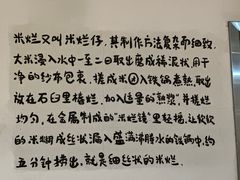 米烂又叫米烂仔，其制作方法复杂而细致，
大米浸入水中一至二日取出磨成稀泥状，用干
净的纱布包裹，搓成米团入铁锅煮熟，取出
放在石臼里捣烂，加入适量的熟浆，并搓烂
均匀，在金属制成的"米烂镂"里轻搓，让软软
的米糊成丝状漏入盛满沸腾水的铁锅中，约
五分钟捞出，就是细丝状的米烂。